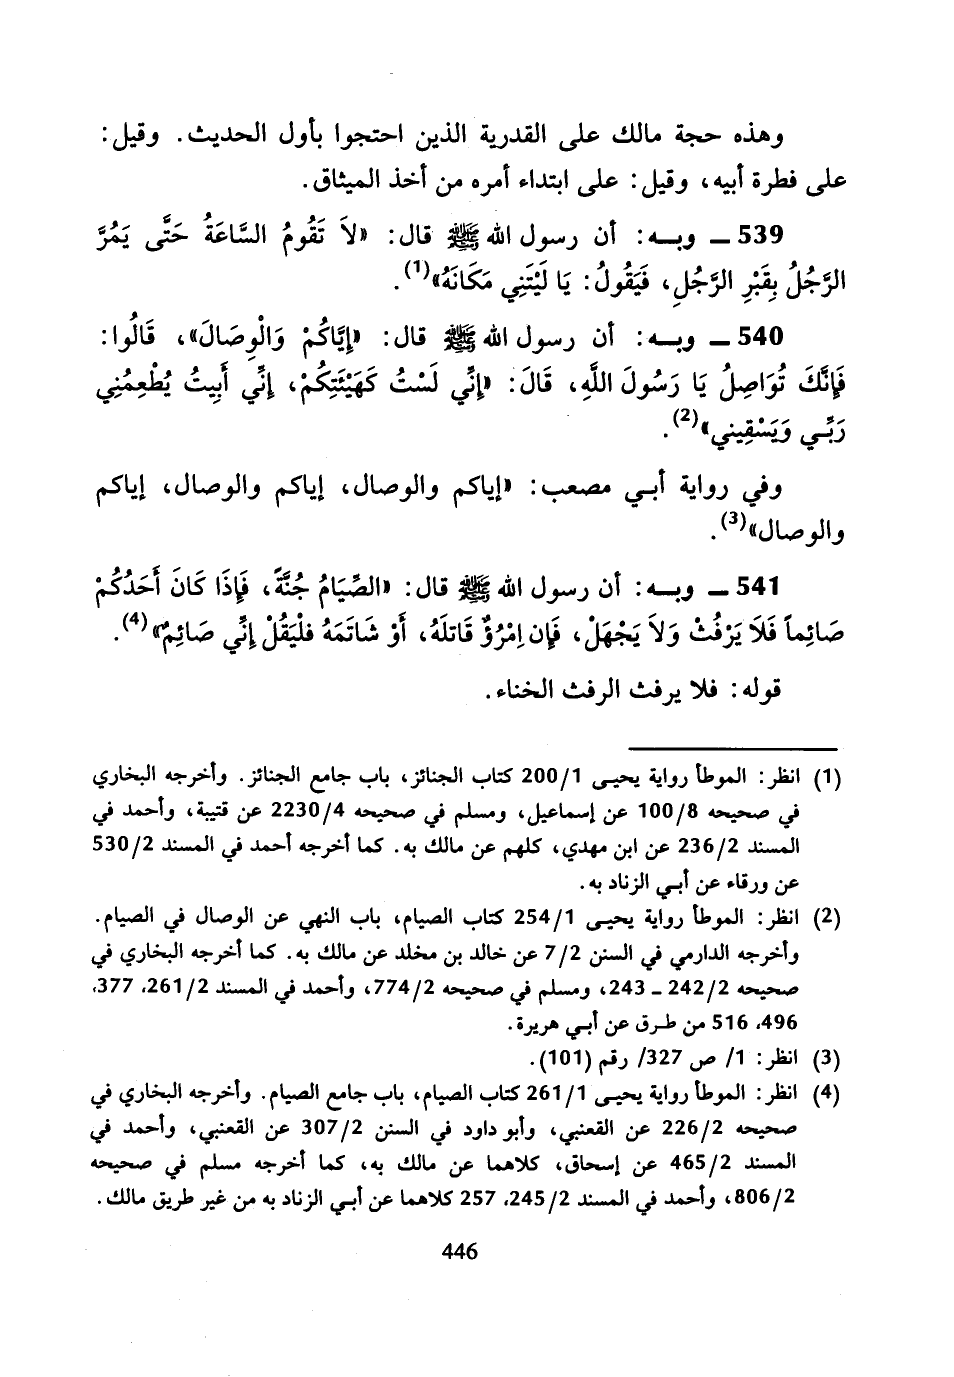 وهذه حجة مالك على القدرية الذين احتجوا بأول الحديث. وقيل:
على فطرة أبيه، وقيل: على ابتداء أمره من أخذ الميثاق.
539 ـ وبـه: أن رسول الله ﷺ قال: «لاَ تَقُومُ السَّاعَةُ حَتَّى يَمُرَّ
الرَّجُلُ بِقَبْرِ الرَّجُلِ، فَيَقُولُ: يَا لَيْتَنِي مَكَانَهُ»(1).
540 ـ وبـه: أن رسول الله ﷺ قال: «إِيَّاكُمْ وَالْوِصَالَ»، قَالُوا:
فَإِنَّكَ تُوَاصِلُ يَا رَسُولَ اللَّهِ، قَالَ: «إِنِّي لَسْتُ كَهَيْئَتِكُمْ، إِنِّي أَبِيتُ يُطْعِمُنِي
رَبِّي وَيَسْقِينِي»(2).
وفي رواية أبي مصعب: «إياكم والوصال، إياكم والوصال، إياكم
والوصال»(3).
541 ـ وبـه: أن رسول الله ﷺ قال: «الصِّيَامُ جُنَّةً، فَإِذَا كَانَ أَحَدُكُمْ
صَائِماً فَلاَ يَرْفُثْ وَلاَ يَجْهَلْ، فَإِن اِمْرُؤٌ قَاتلَهُ، أَوْ شَاتَمَهُ فلْيَقُلْ إِنِّي صَائِمٌ»(4).
قوله: فلا يرفث الرفث الخناء.
(1) انظر: الموطأ رواية يحيى 200/1 كتاب الجنائز، باب جامع الجنائز. وأخرجه البخاري
في صحيحه 100/8 عن إسماعيل، ومسلم في صحيحه 2230/4 عن قتيبة، وأحمد في
المسند 236/2 عن ابن مهدي، كلهم عن مالك به. كما أخرجه أحمد في المسند 530/2
عن ورقاء عن أبي الزناد به.
(2) انظر: الموطأ رواية يحيى 254/1 كتاب الصيام، باب النهي عن الوصال في الصيام.
وأخرجه الدارمي في السنن 7/2 عن خالد بن مخلد عن مالك به. كما أخرجه البخاري في
صحيحه 242/2 ـ 243، ومسلم في صحيحه 774/2، وأحمد في المسند 261/2، 377،
496، 516 من طرق عن أبي هريرة.
(3) انظر: 1/ ص 327/ رقم (101).
(4) انظر: الموطأ رواية يحيى 261/1 كتاب الصيام، باب جامع الصيام. وأخرجه البخاري في
صحيحه 226/2 عن القعنبي، وأبو داود في السنن 307/2 عن القعنبي، وأحمد في
المسند 465/2 عن إسحاق، كلاهما عن مالك به، كما أخرجه مسلم في صحيحه
806/2، وأحمد في المسند 245/2، 257 كلاهما عن أبي الزناد به من غير طريق مالك.
446